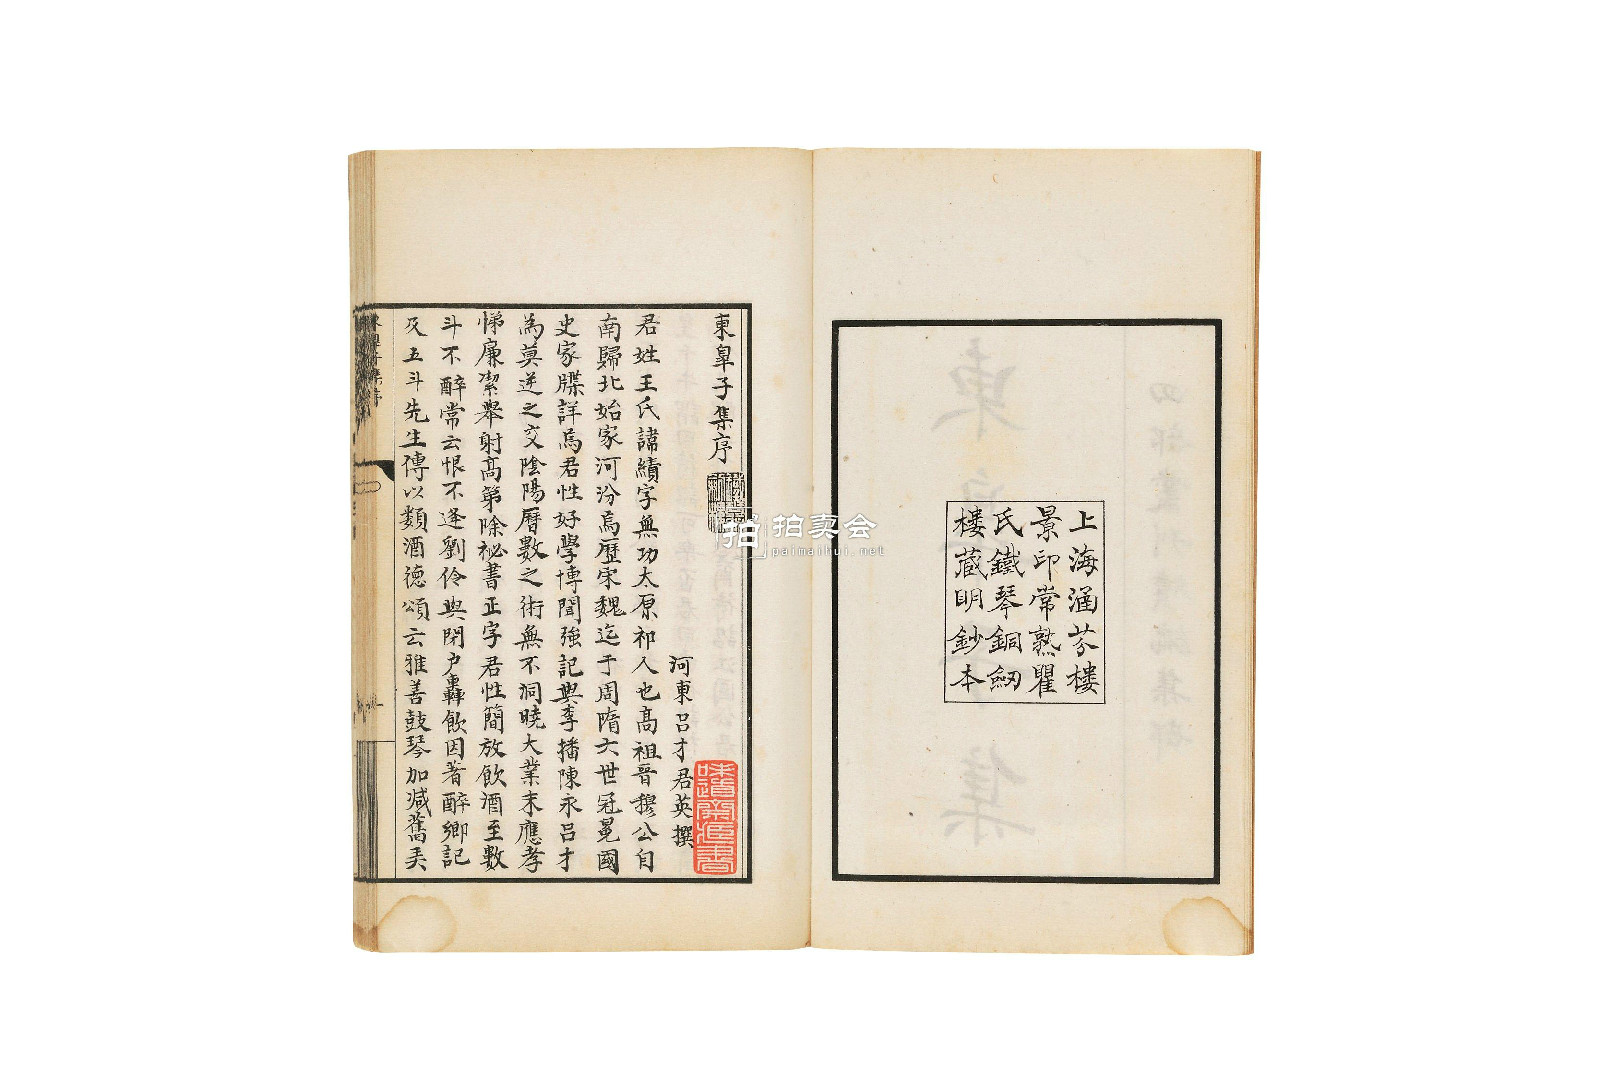 上海涵芬樓
景印常熟瞿
氏鐵琴銅劒
樓藏明鈔本
東臯子集序
河東呂才君英撰
君姓王氏諱績字無功太原祁人也高祖晉穆公自
南歸北始家河汾焉歷宋魏迄于周隋六世冠冕國
史家牒詳焉君性好學博聞強記與李播陳永呂才
為莫逆之交陰陽曆數之術無不洞曉大業末應孝
悌廉潔舉射高第除祕書正字君性簡放飲酒至數
斗不醉常云恨不逢劉伶與閉户轟飲因著醉鄉記
及五斗先生傳以類酒德頌云雅善鼓琴加減舊弄
拍卖会
paimaihui.net